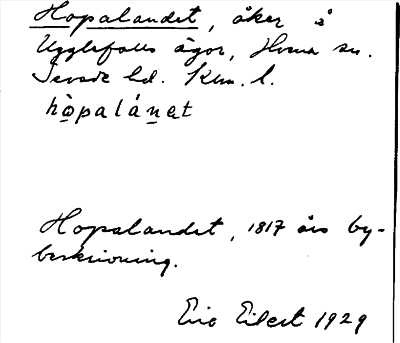 Hopalandet, åker å
Ugglefalls ägor, Hvena sn.
Sevede hd. Klm. l.
ho̱palánet
Hopalandet, 1817 års by-
beskrivning.
Eric Eilert 1929